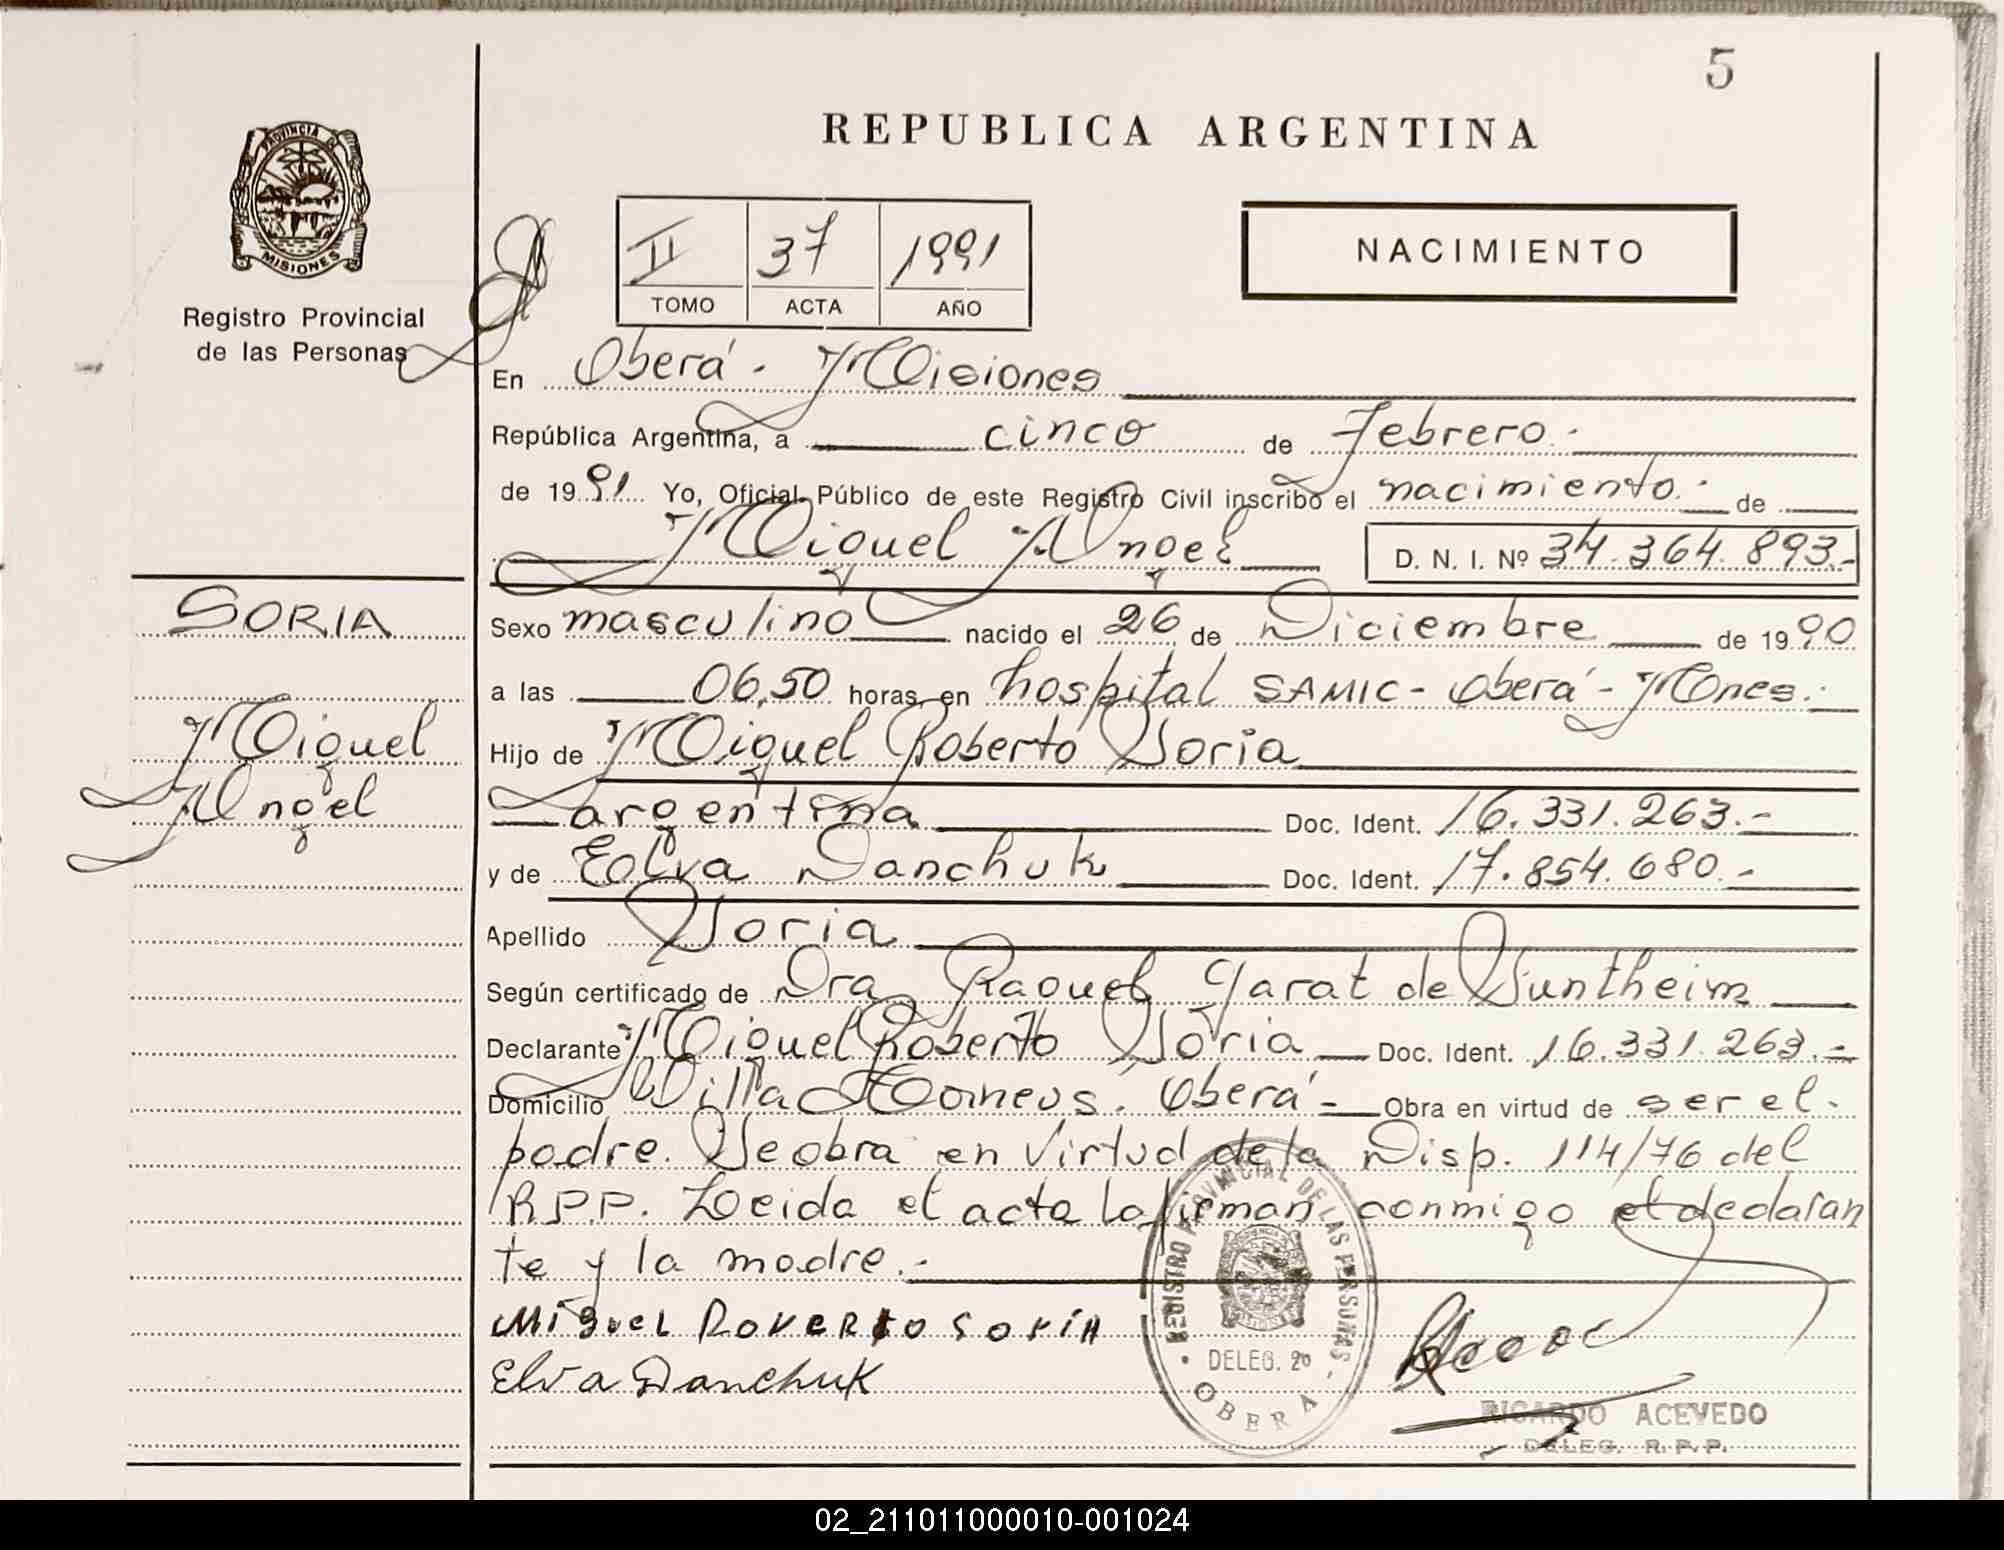 5
REPUBLICA ARGENTINA
PROVINCIA
MISIONES
Registro Provincial
de las Personas
II 37 1991
TOMO ACTA AÑO
NACIMIENTO
En Oberá - Misiones
República Argentina, a cinco de Febrero.-
de 1991 Yo, Oficial Público de este Registro Civil inscribo el nacimiento.- de
Miguel Angel D. N. I. Nº 34.364.893.-
SORIA
Sexo masculino nacido el 26 de Diciembre de 1990
a las 06,50 horas, en hospital SAMIC - Oberá - Mones.-
Miguel
Hijo de Miguel Roberto Soria
Angel
argentina Doc. Ident. 16.331.263.-
y de Elva Danchuk Doc. Ident. 17.854.680.-
Apellido Soria
Según certificado de Dra Raquel Garat de Suntheim
Declarante Miguel Roberto Soria Doc. Ident. 16.331.263.-
Domicilio Villa Oberá - Obra en virtud de ser el.
padre. Se obra en virtud de la Disp. 114/76 del
R.P.P. Leida el acta la firman conmigo el declaran
te y la madre.-
Miguel RoverTo Soria
Elva Danchuk
REGISTRO PROVINCIAL DE LAS PERSONAS
DELEG. 2º
OBERA
RICARDO ACEVEDO
DELEG. R.P.P.
02_211011000010-001024